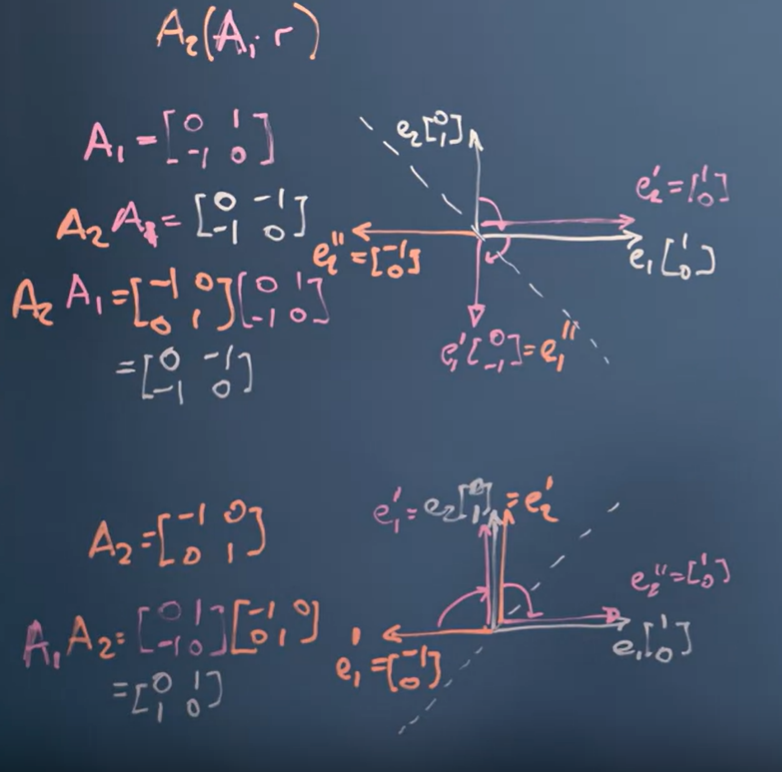 A₂(A₁ r)
A₁ = [0 1; -1 0]
A₂ A₁ = [0 -1; -1 0]
A₂ A₁ = [-1 0; 0 1][0 1; -1 0]
= [0 -1; -1 0]
e₂[0; 1]
e₂' = [1; 0]
e₁[1; 0]
e₂'' = [-1; 0]
e₁'[0; -1] = e₁''
A₂ = [-1 0; 0 1]
A₁ A₂ = [0 1; -1 0][-1 0; 0 1]
= [0 1; 1 0]
e₁' = e₂[0; 1] = e₂'
e₂'' = [1; 0]
e₁[1; 0]
e₁' = [-1; 0]